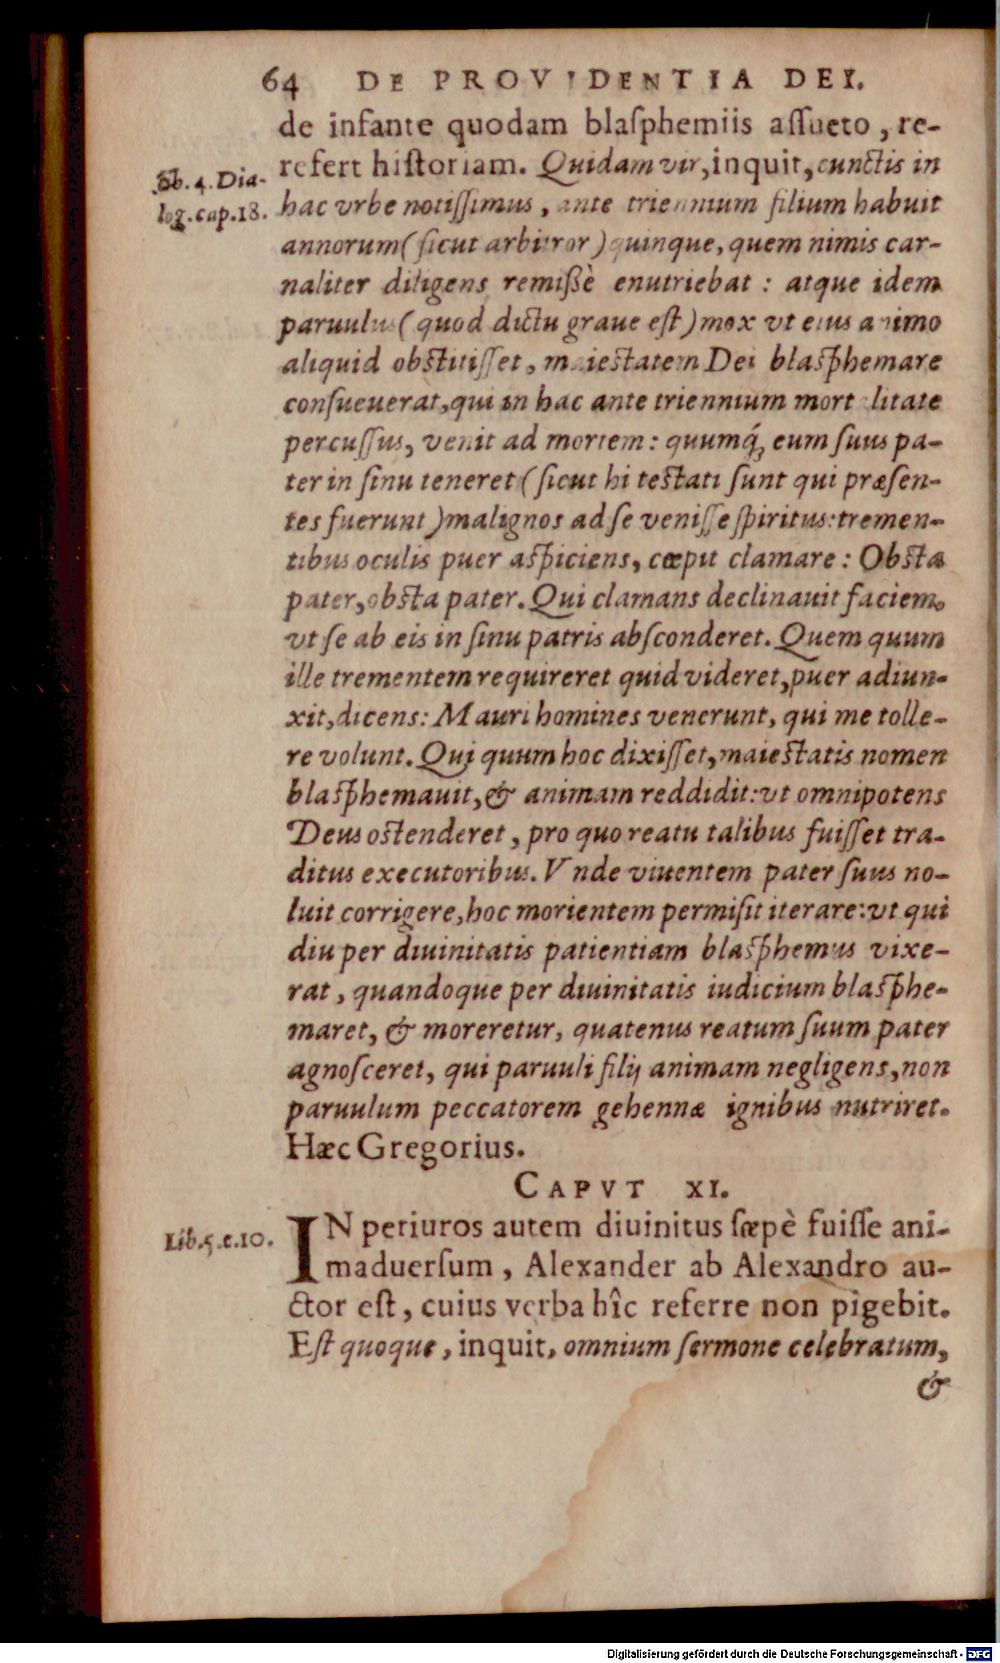 64 DE PROVIDENTIA DEI.
de infante quodam blaſphemiis aſſueto, re-
refert hiſtoriam. Quidam vir, inquit, cunctis in
lib. 4. Dia-
log. cap. 18.
hac vrbe notiſſimus, ante triennium filium habuit
annorum (ſicut arbitror) quinque, quem nimis car-
naliter diligens remißè enutriebat : atque idem
paruulus (quod dictu graue eſt) mox vt eius animo
aliquid obſtitiſſet, maieſtatem Dei blaſphemare
conſueuerat, qui in hac ante triennium mortalitate
percuſſus, venit ad mortem : quumq́; eum ſuus pa-
ter in ſinu teneret (ſicut hi teſtati ſunt qui præſen-
tes fuerunt) malignos ad ſe veniſſe ſpiritus: tremen-
tibus oculis puer aſpiciens, cœpit clamare : Obſta
pater, obſta pater. Qui clamans declinauit faciem,
vt ſe ab eis in ſinu patris abſconderet. Quem quum
ille trementem requireret quid videret, puer adiun-
xit, dicens: Mauri homines venerunt, qui me tolle-
re volunt. Qui quum hoc dixiſſet, maieſtatis nomen
blaſphemauit, & animam reddidit: vt omnipotens
Deus oſtenderet, pro quo reatu talibus fuiſſet tra-
ditus executoribus. Vnde viuentem pater ſuus no-
luit corrigere, hoc morientem permiſit iterare: vt qui
diu per diuinitatis patientiam blaſphemus vixe-
rat, quandoque per diuinitatis iudicium blaſphe-
maret, & moreretur, quatenus reatum ſuum pater
agnoſceret, qui paruuli filij animam negligens, non
paruulum peccatorem gehennæ ignibus nutriret.
Hæc Gregorius.
CAPVT XI.
Lib. 5. c. 10.
IN periuros autem diuinitus ſæpè fuiſſe ani-
maduerſum, Alexander ab Alexandro au-
ctor eſt, cuius verba hîc referre non pigebit.
Eſt quoque, inquit, omnium ſermone celebratum,
&
Digitalisierung gefördert durch die Deutsche Forschungsgemeinschaft - DFG